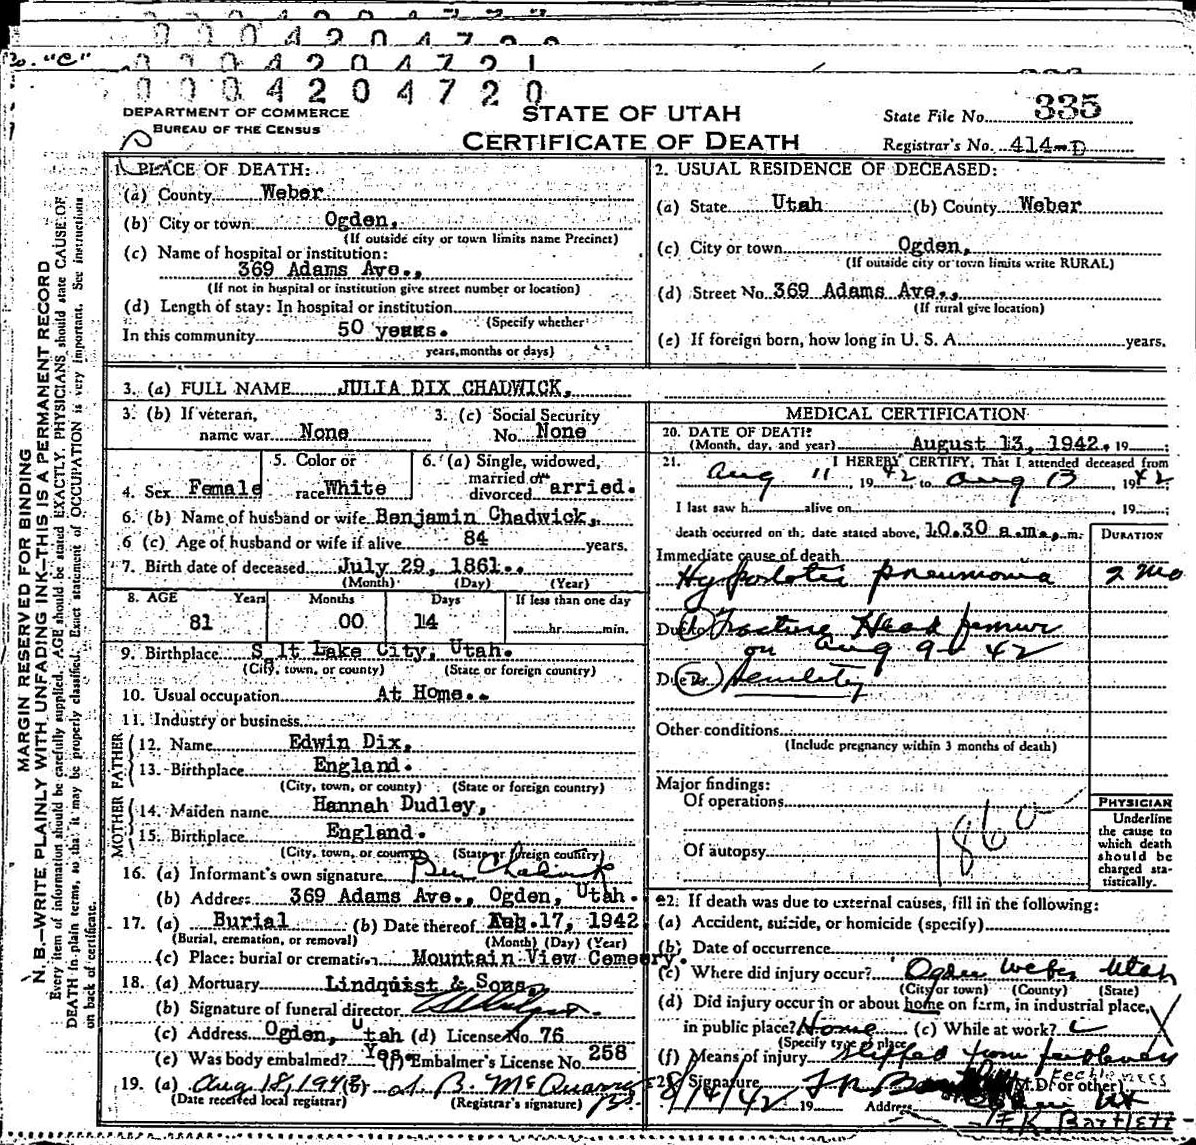 0 0 0 4 2 0 4 7 2 1
0 0 0 4 2 0 4 7 2 0
"C"
DEPARTMENT OF COMMERCE
BUREAU OF THE CENSUS
STATE OF UTAH
CERTIFICATE OF DEATH
State File No. 335
Registrar's No. 414-D
MARGIN RESERVED FOR BINDING
N. B.—WRITE PLAINLY WITH UNFADING INK—THIS IS A PERMANENT RECORD
Every item of information should be carefully supplied. AGE should be stated EXACTLY. PHYSICIANS should state CAUSE OF
DEATH in plain terms, so that it may be properly classified. Exact statement of OCCUPATION is very important. See instructions
on back of certificate.
1. PLACE OF DEATH:
(a) County Weber
(b) City or town Ogden,
(If outside city or town limits name Precinct)
(c) Name of hospital or institution:
369 Adams Ave.,
(If not in hospital or institution give street number or location)
(d) Length of stay: In hospital or institution
(Specify whether
In this community 50 years.
years, months or days)
2. USUAL RESIDENCE OF DECEASED:
(a) State Utah (b) County Weber
(c) City or town Ogden,
(If outside city or town limits write RURAL)
(d) Street No 369 Adams Ave.,
(If rural give location)
(e) If foreign born, how long in U. S. A. years.
3. (a) FULL NAME JULIA DIX CHADWICK,
3. (b) If veteran, name war None
3. (c) Social Security No. None
4. Sex Female
5. Color or race White
6. (a) Single, widowed, married or divorced arried.
6. (b) Name of husband or wife Benjamin Chadwick,
6 (c) Age of husband or wife if alive 84 years.
7. Birth date of deceased July 29, 1861.
(Month) (Day) (Year)
8. AGE Years Months Days If less than one day
81 00 14 hr. min.
9. Birthplace S lt Lake City, Utah.
(City, town, or county) (State or foreign country)
10. Usual occupation At Home.
11. Industry or business
FATHER
12. Name Edwin Dix,
13. Birthplace England.
(City, town, or county) (State or foreign country)
MOTHER
14. Maiden name Hannah Dudley,
15. Birthplace England.
(City, town, or county) (State or foreign country)
16. (a) Informant's own signature Ben Chadwick
(b) Address 369 Adams Ave., Ogden, Utah.
17. (a) Burial (b) Date thereof Aug. 17, 1942
(Burial, cremation, or removal) (Month) (Day) (Year)
(c) Place: burial or cremation Mountain View Cemetery.
18. (a) Mortuary Lindquist & Sons
(b) Signature of funeral director
(c) Address Ogden, Utah (d) License No. 76
(e) Was body embalmed? Yes. Embalmer's License No. 258
19. (a) Aug 18, 1942 (b)
(Date received local registrar) (Registrar's signature)
MEDICAL CERTIFICATION
20. DATE OF DEATH:
(Month, day, and year) August 13, 1942. 19
21. I HEREBY CERTIFY, That I attended deceased from
Aug 11, 1942 to Aug 13, 1942
I last saw h alive on , 19
death occurred on the date stated above, 10.30 a.m., m.
DURATION
Immediate cause of death
Hypostatic pneumonia 2 mo
Due to (1) Fracture Head femur
on Aug 9 - 42
Due to (2) Senility
Other conditions
(Include pregnancy within 3 months of death)
Major findings:
Of operations
Of autopsy
186
PHYSICIAN
Underline the cause to which death should be charged statistically.
22. If death was due to external causes, fill in the following:
(a) Accident, suicide, or homicide (specify)
(b) Date of occurrence
(c) Where did injury occur? Ogden Weber Utah
(City or town) (County) (State)
(d) Did injury occur in or about home on farm, in industrial place,
in public place? Home (e) While at work?
(Specify type of place
(f) Means of injury slipped from feebleness
Feebleness
23. Signature (M.D. or other)
8/14/42 19 Address
F. K. Bartlett